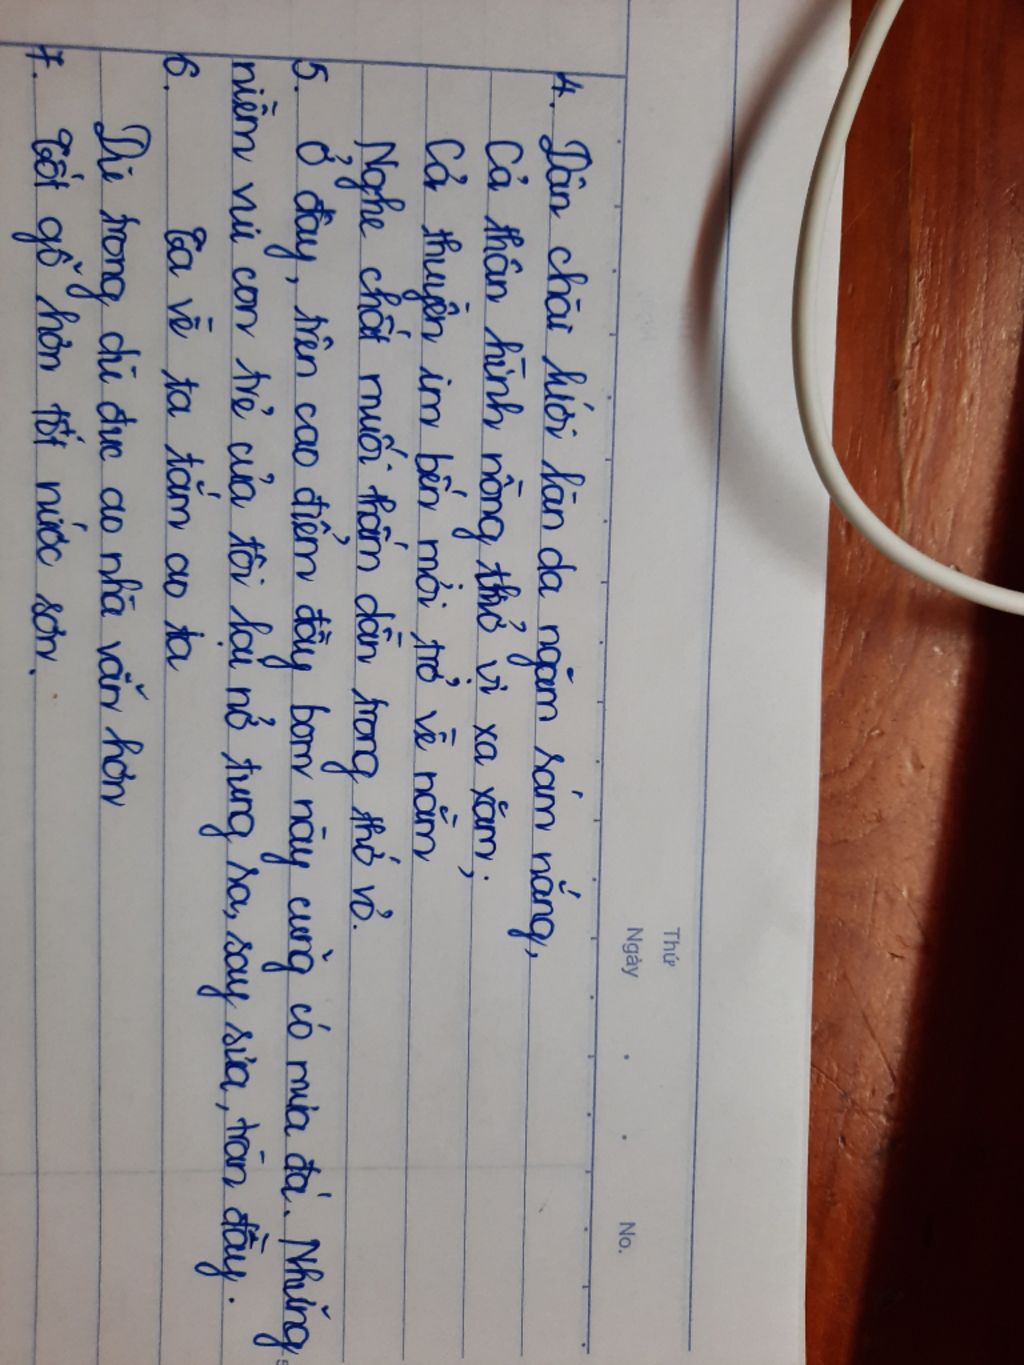 Thứ
Ngày
No.
4. Dân chài lưới làn da ngăm sám nắng,
Cả thân hình nồng thở vị xa xăm;
Cả thuyền im bến mỏi trở về nằm
Nghe chất muối thấm dần trong thớ vỏ.
5. Ở đây, trên cao điểm đầy bom này cũng có mưa đá. Những
niềm vui con trẻ của tôi lại nở tung ra, say sưa, tràn đầy.
6. Ta về ta tắm ao ta
Dù trong dù đục ao nhà vẫn hơn
7. Tốt gỗ hơn tốt nước sơn.